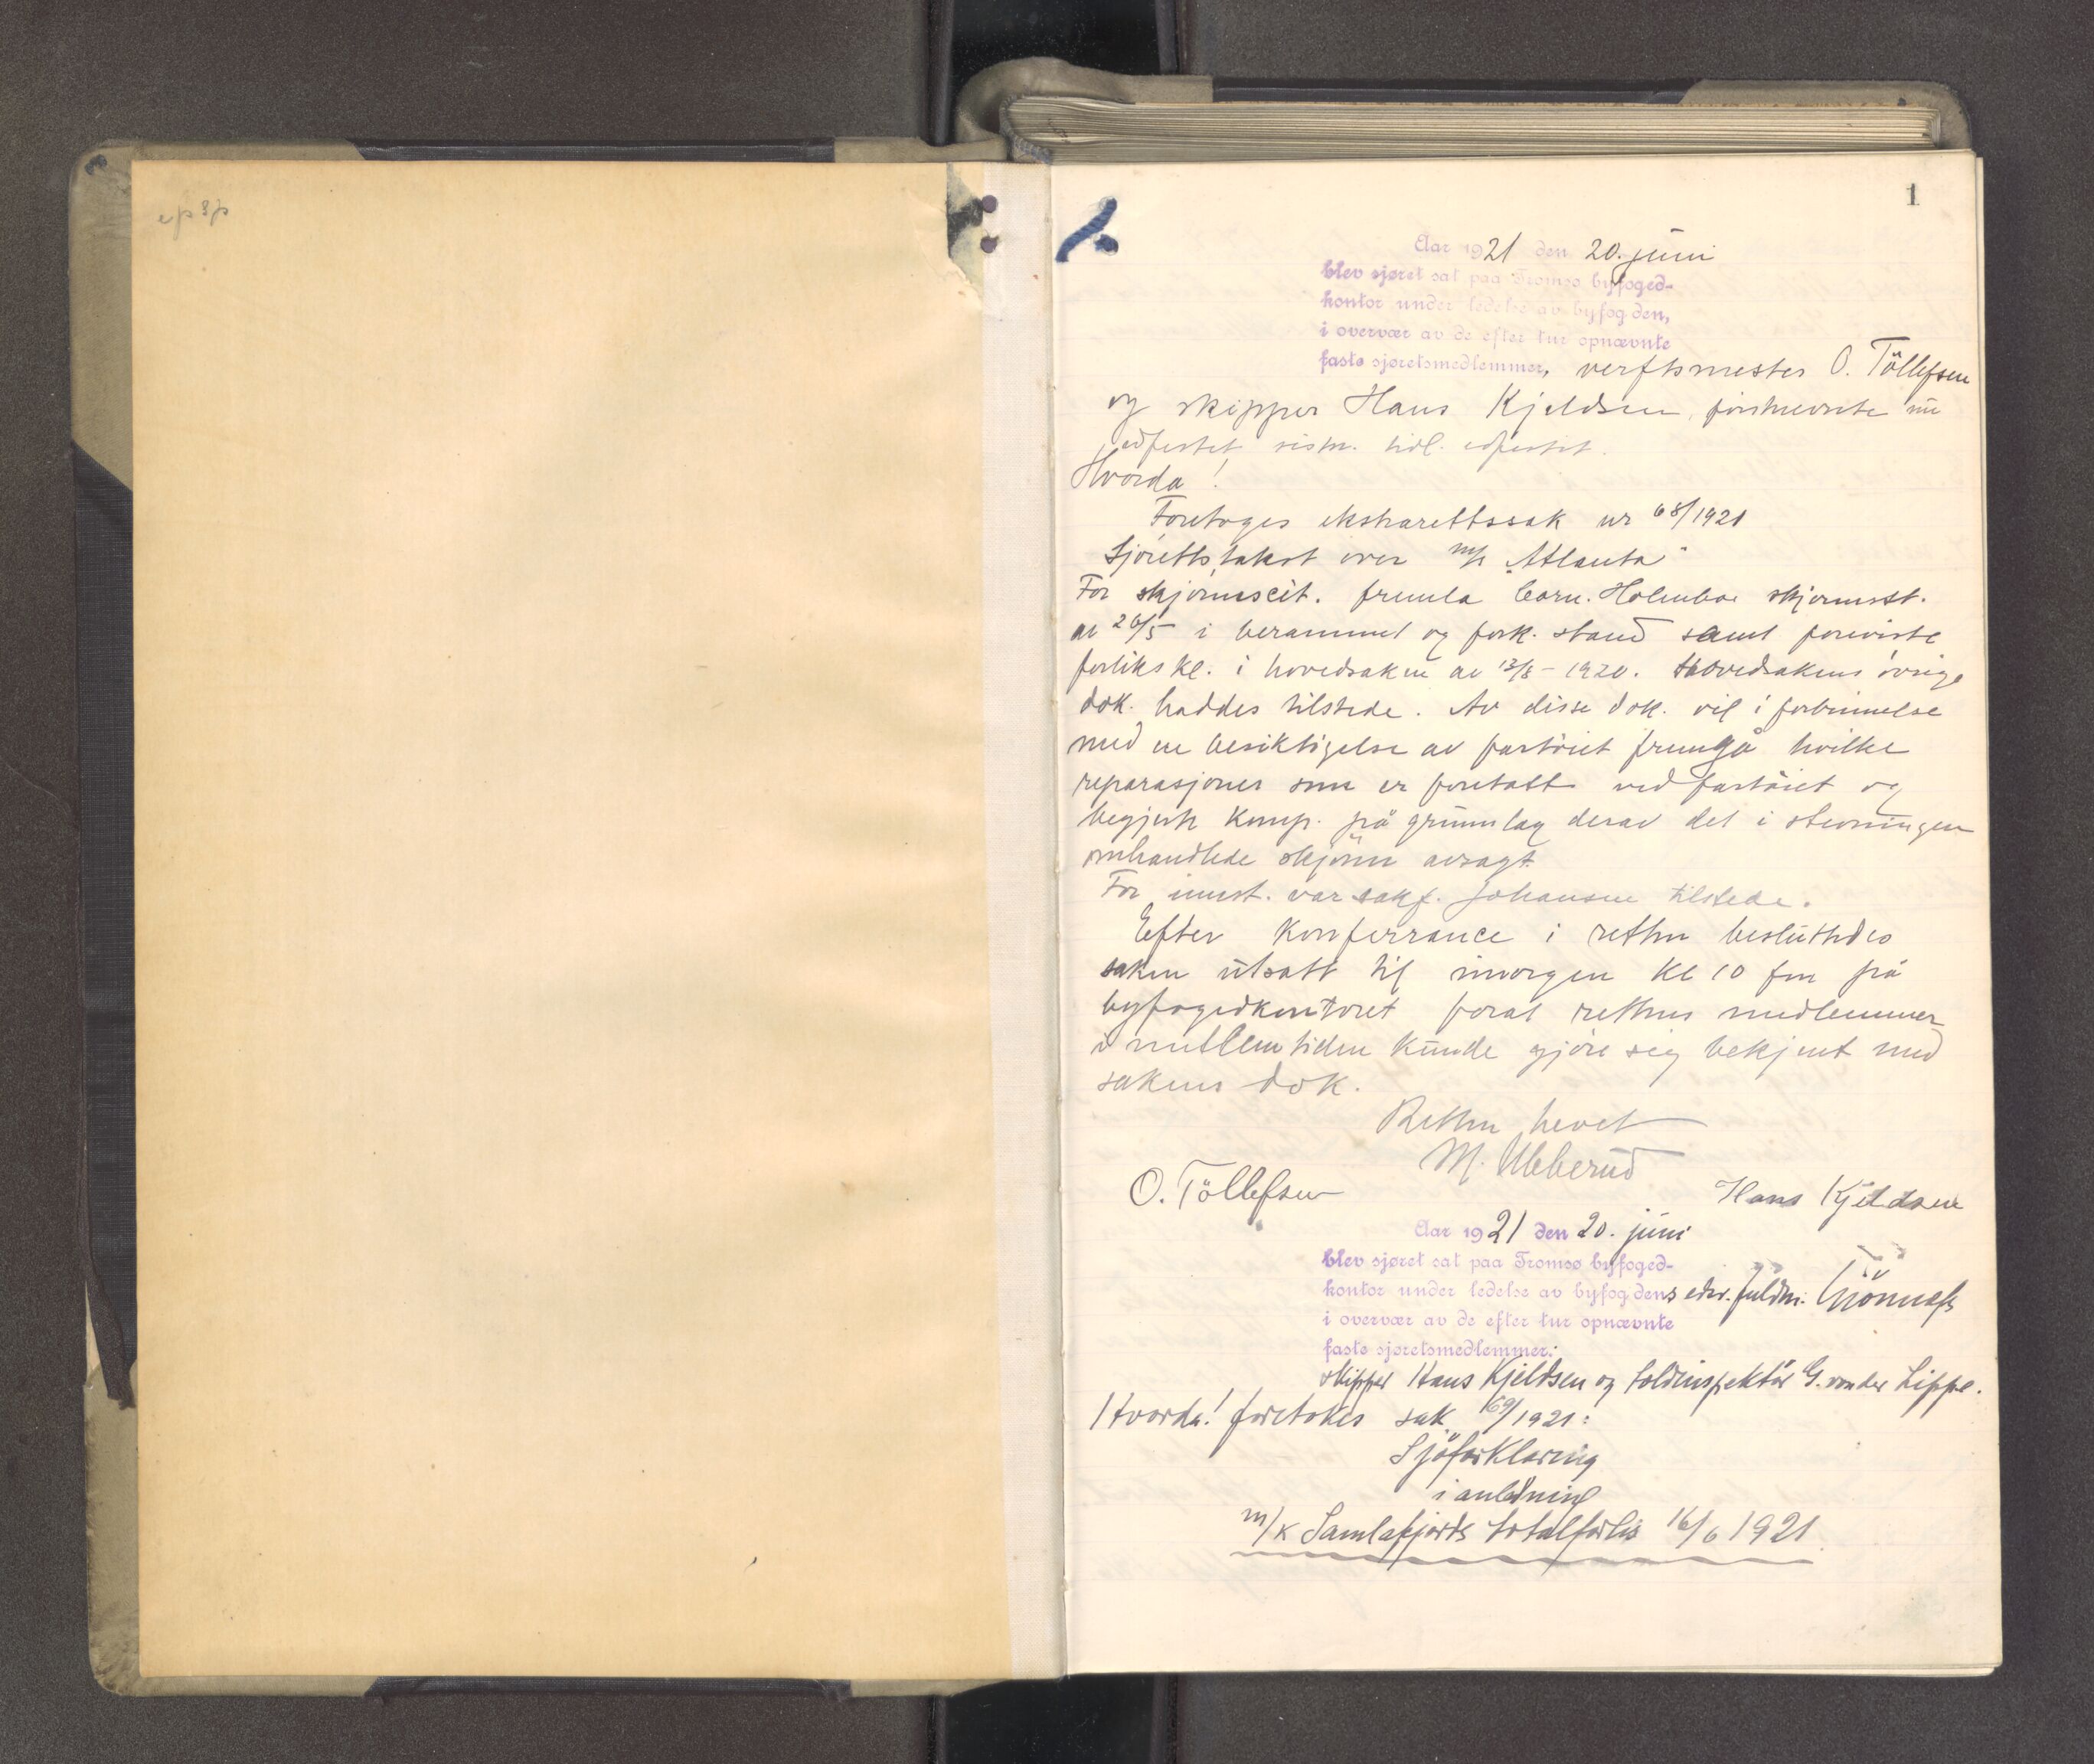 1
Aar 1921 den 20. juni
blev sjøret sat paa Tromsø byfoged-
kontor under ledelse av byfogden,
i overvær av de efter tur opnævnte
faste sjøretsmedlemmer, verftsmester O. Töllefsen
og skipper Hans Kjeldsen, førstnevnte nu
edfestet sistn. tidl. edfestet.
Hvorda!
Foretoges ekstrarettssak nr 68/1921
Sjørettstakst over m/k "Atlanta"
For skjønnscit. fremla Corn. Holmboe skjønnsst.
av 26/5 i berammet og fork. stand samt foreviste
forlikskl. i hovedsaken av 12/8 - 1920. Hovedsakens övrige
dok. haddes tilstede. Av disse dok. vil i forbinnelse
med en besiktigelse av fartöiet fremgå hvilke
reparasjoner som er foretatt ved fartöiet og
begjerte komp. på grunnlag derav det i stevningen
omhandlede skjønn avsagt.
For innst. var sakf. Johansen tilstede.
Efter konferrance i retten besluttedes
saken utsatt til imorgen kl 10 fm på
byfogedkontoret forat rettens medlemmer
i mellemtiden kunde gjöre sig bekjent med
sakens dok.
Retten hevet
M. Ulleberud
O. Töllefsen Hans Kjeldsen
Aar 1921 den 20. juni
blev sjøret sat paa Tromsø byfoged-
kontor under ledelse av byfogdens edsv. fuldm.
i overvær av de efter tur opnævnte
faste sjøretsmedlemmer:
skipper Hans Kjeldsen og toldinspektör G. von der Lippe.
Hvorda! foretokes sak 69/1921:
Sjöforklaring
i anledning
m/k Samlafjords totalforlis 16/6 1921.